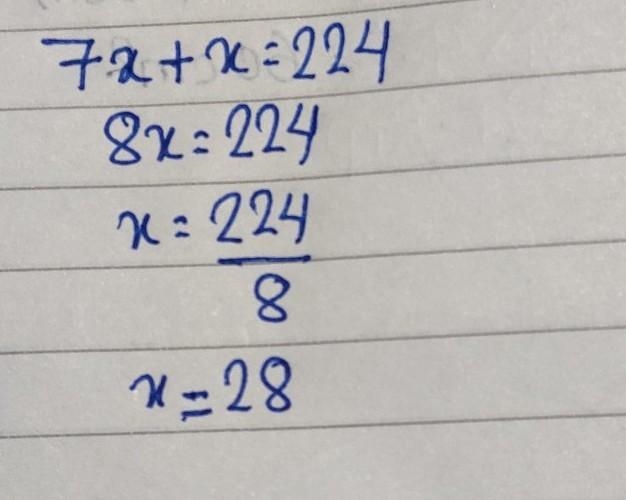 7x+x=224
8x=224
x=224
8
x=28